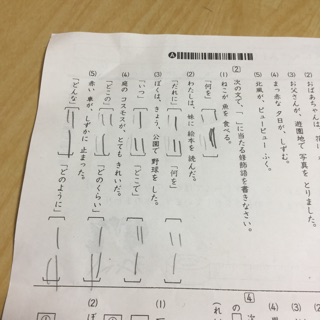 (2) おばあちゃんは、
(3) お父さんが、遊園地で 写真を とりました。
(4) まっ赤な 夕日が、しずむ。
(5) 北風が、ピューピュー ふく。
② 次の文で、「 」に当たる修飾語を書きなさい。
(1) ねこが 魚を 食べる。
「何を」
(2) わたしは、妹に 絵本を 読んだ。
「だれに」 「何を」
(3) ぼくは、きょう、公園で 野球を した。
「いつ」 「どこで」
(4) 庭の コスモスが、とても きれいだ。
「どこの」 「どのくらい」
(5) 赤い 車が、しずかに 止まった。
「どんな」 「どのように」
④
(1)
(2)